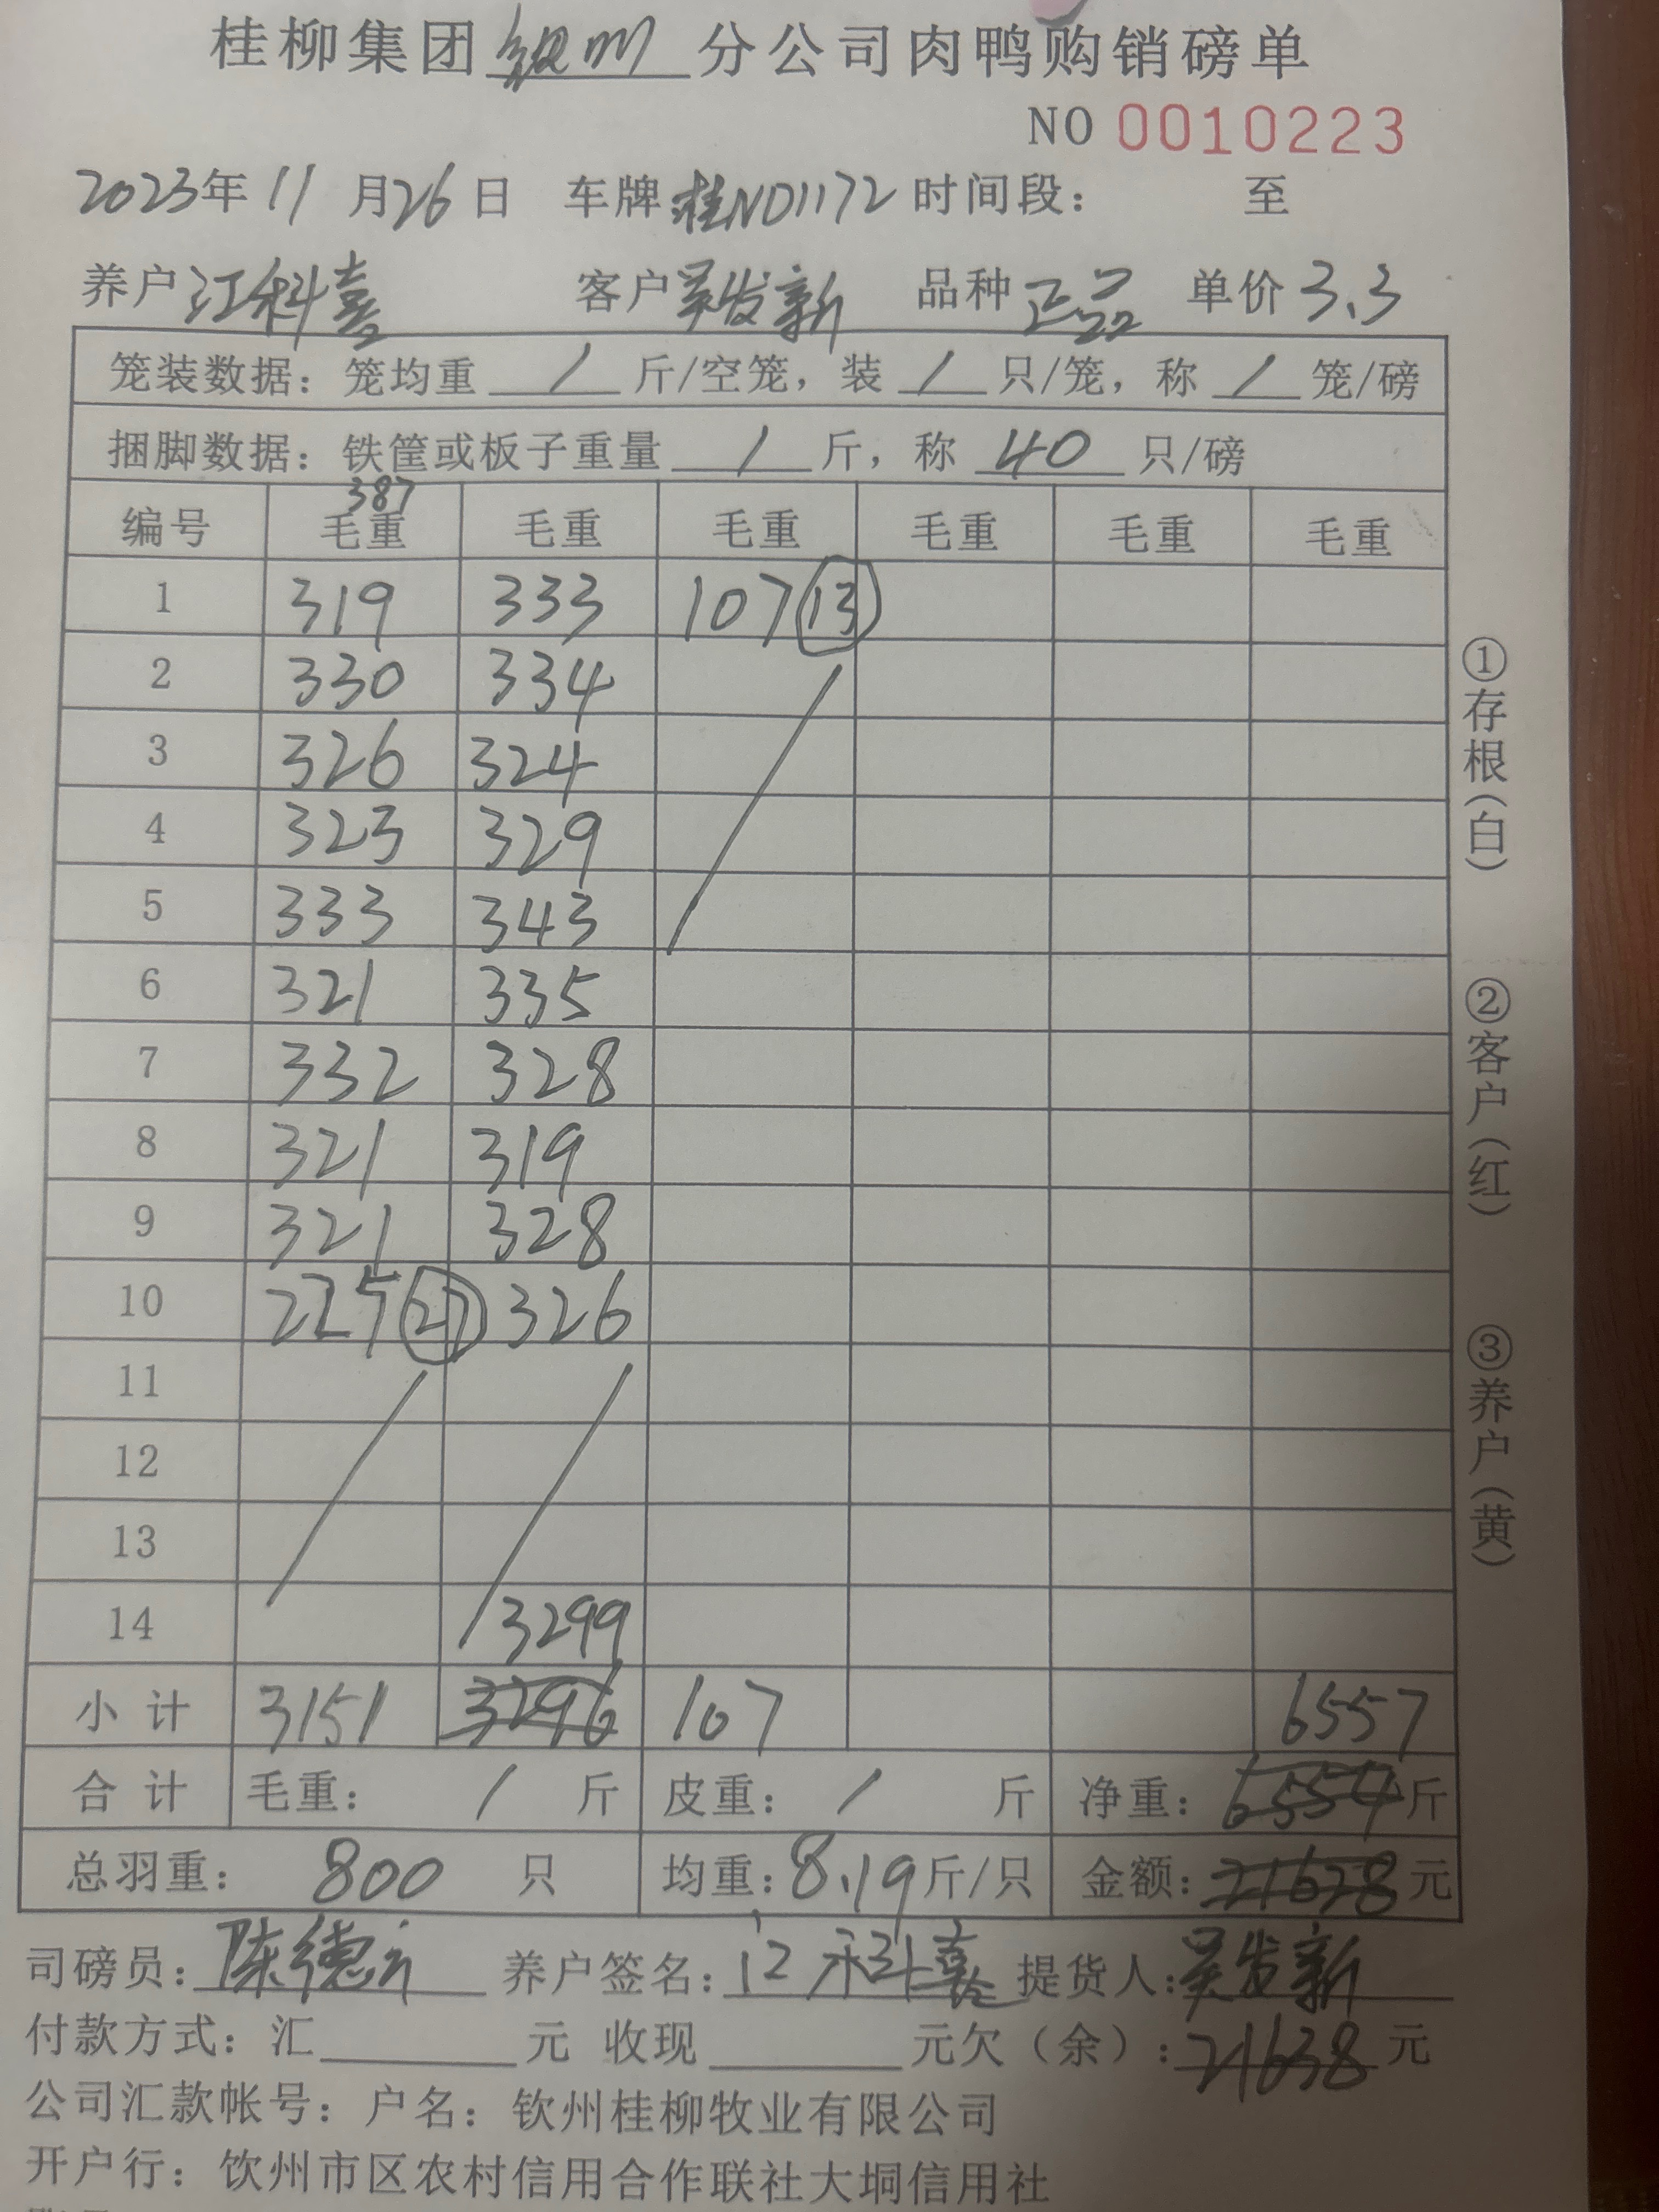 桂柳集团钦州分公司肉鸭购销磅单
NO 0010223
2023年11月26日 车牌桂ND1172 时间段： 至
养户江科喜 客户吴发新 品种正品 单价3.3
笼装数据：笼均重 / 斤/空笼，装 / 只/笼，称 / 笼/磅
捆脚数据：铁筐或板子重量 / 斤，称 40 只/磅
387
编号 毛重 毛重 毛重 毛重 毛重 毛重
1 319 333 107 13
2 330 334
3 326 324
4 323 329
5 333 343
6 321 335
7 332 328
8 321 319
9 321 328
10 225 27 326
11
12
13
14 3299
小计 3151 3296 107 6557
合计 毛重： / 斤 皮重： / 斤 净重：6554斤
总羽重： 800 只 均重：8.19斤/只 金额：21628元
司磅员：陈德 养户签名：江科喜 提货人：吴发新
付款方式：汇 元 收现 元欠（余）：21638元
公司汇款帐号：户名：钦州桂柳牧业有限公司
开户行：钦州市区农村信用合作联社大垌信用社
①存根（白）
②客户（红）
③养户（黄）